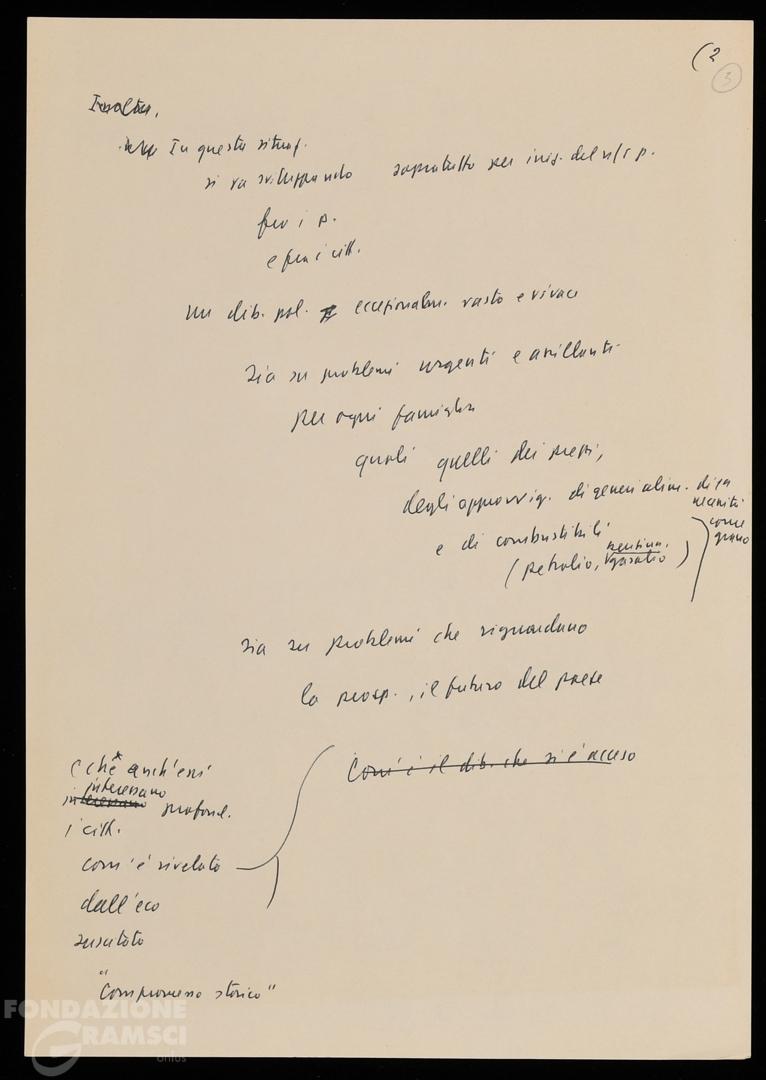 (2
3
Inoltre,
In questa situaz.
si va sviluppando sopratutto per iniz. del n/ p.
fra i p.
e fra i citt.
un dib. pol. eccezionalm. vasto e vivace
sia su problemi urgenti e assillanti
per ogni famiglia
quali quelli dei prezzi,
degli approvvig. di generi alim. di 1a
necessità
come
grano
e di combustibili
(petrolio, benzina, gasolio)
sia su problemi che riguardano
la prosp., il futuro del paese
Com'è il dib. che si è acceso
e che anch'essi
interessano
interessano profond.
i citt.
com'è rivelato
dall'eco
suscitato
"compromesso storico"
FONDAZIONE
GRAMSCI
onlus